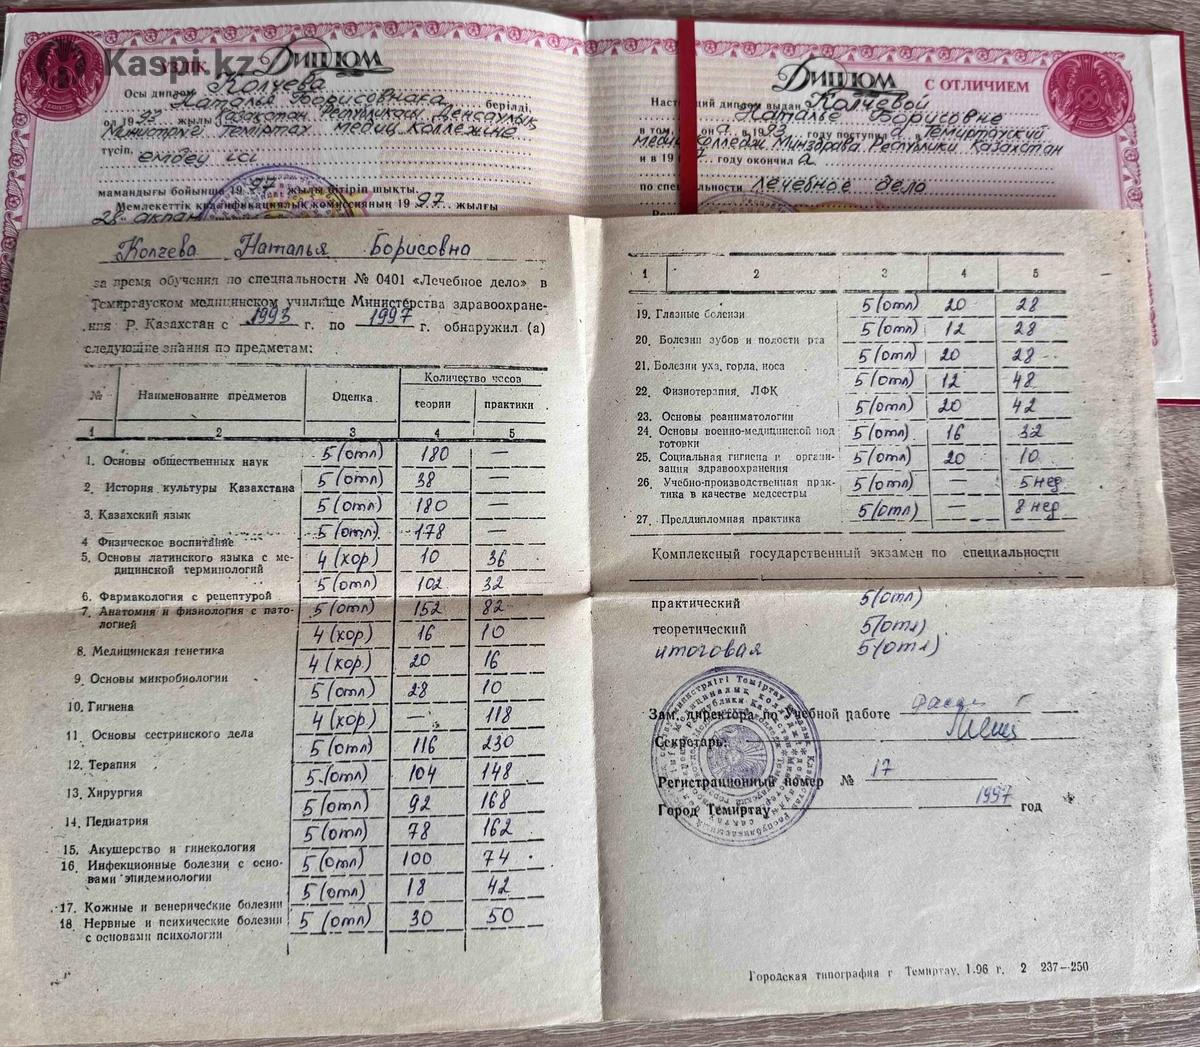 Kaspi.kz
ҮЗДІК ДИПЛОМ
Осы диплом Колчева
Наталья Борисовнаға берілді,
ол 1993 жылы Қазақстан Республикасы Денсаулық
Министрлігі Теміртау медиц колледжіне
түсіп,
емдеу ісі
мамандығы бойынша 1997 жылы бітіріп шықты.
Мемлекеттік квалификациялық комиссияның 1997 жылғы
28 ақпан
ДИПЛОМ С ОТЛИЧИЕМ
Настоящий диплом выдан Колчевой
Наталье Борисовне
в том, что она в 1993 году поступила в Темиртауский
Медиц колледж Минздрава Республики Казахстан
и в 1997 году окончила
по специальности лечебное дело
Колчева Наталья Борисовна
за время обучения по специальности № 0401 «Лечебное дело» в
Темиртауском медицинском училище Министерства здравоохране-
ния Р. Казахстан с 1993 г. по 1997 г. обнаружил (а)
следующие знания по предметам:
№ Наименование предметов Оценка Количество часов
теории практики
1 2 3 4 5
1. Основы общественных наук 5 (отл) 180 —
2. История культуры Казахстана 5 (отл) 38 —
3. Казахский язык 5 (отл) 180 —
4 Физическое воспитание 5 (отл) 178 —
5. Основы латинского языка с ме-
дицинской терминологий 4 (хор) 10 36
6. Фармакология с рецептурой 5 (отл) 102 32
7. Анатомия и физиология с пато-
логией 5 (отл) 152 82
8. Медицинская генетика 4 (хор) 16 10
9. Основы микробиологии 4 (хор) 20 16
10. Гигиена 5 (отл) 28 10
11. Основы сестринского дела 4 (хор) — 118
12. Терапия 5 (отл) 116 230
13. Хирургия 5 (отл) 104 148
14. Педиатрия 5 (отл) 92 168
15. Акушерство и гинекология 5 (отл) 78 162
16. Инфекционные болезни с осно-
вами эпидемиологии 5 (отл) 100 74
17. Кожные и венерические болезни 5 (отл) 18 42
18 Нервные и психические болезни
с основами психологии 5 (отл) 30 50
1 2 3 4 5
19. Глазные болезни 5 (отл) 20 28
20. Болезни зубов и полости рта 5 (отл) 12 28
21. Болезни уха, горла, носа 5 (отл) 20 28
22. Физиотерапия, ЛФК 5 (отл) 12 48
23. Основы реаниматологии 5 (отл) 20 42
24. Основы военно-медицинской под
готовки 5 (отл) 16 32
25. Социальная гигиена и органи-
зация здравоохранения 5 (отл) 20 10
26. Учебно-производственная прак-
тика в качестве медсестры 5 (отл) — 5 нед
27. Преддипломная практика 5 (отл) — 8 нед
Комплексный государственный экзамен по специальности
практический 5 (отл)
теоретический 5 (отл)
итоговая 5 (отл)
Зам. директора по Учебной работе
Секретарь:
Регистрационный номер № 17
Город Темиртау 1997 год
Городская типография г Темиртау, 1.96 г. 2 237—250